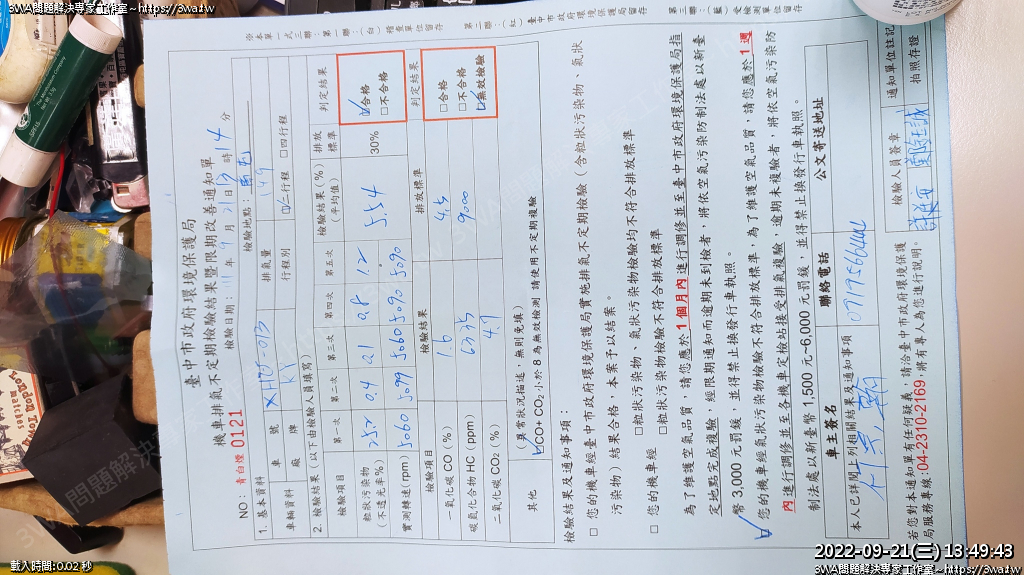 3WA問題解決專家工作室~https://3wa.tw
※本單一式三聯:第一聯:(白)稽查單位留存 第二聯:(紅)臺中市政府環境保護局留存 第三聯:(藍)受檢測單位留存
臺中市政府環境保護局
機車排氣不定期檢驗結果暨限期改善通知單
NO: 青白煙 0121
檢驗日期: 111年9月21日13時14分
檢驗地點:
1. 基本資料
車號
排氣量 149
車輛資料
廠牌 KY
行程別 ☑二行程 □四行程
2. 檢驗結果(以下由檢驗人員填寫)
檢驗項目 第一次 第二次 第三次 第四次 第五次 檢驗結果(%)(平均值) 排放標準 判定結果
粒狀污染物(不透光率%) 0.4 0.1 0.8 1.2 5.54 30% ☑合格 □不合格
實測轉速(rpm) 5060 5099 5060 5090 5090
檢驗項目 檢驗結果 排放標準 判定結果
一氧化碳 CO (%) 1.6 4.5 □合格
碳氫化合物 HC (ppm) 6335 9000 □不合格
二氧化碳 CO₂ (%) 4.9 ☑無效檢驗
其他 (異常狀況描述,無則免填)
☑CO+ CO₂ 小於 8 為無效檢測 請使用不定期複驗
檢驗結果及通知事項:
□ 您的機車經臺中市政府環境保護局實施排氣不定期檢驗(含粒狀污染物、氣狀
污染物)結果合格,本案予以結案。
□ 您的機車經 □粒狀污染物、氣狀污染物檢驗均不符合排放標準
□粒狀污染物檢驗不符合排放標準
為了維護空氣品質,請您應於1個月內進行調修並至臺中市政府環境保護局指
定地點完成複驗,經限期通知而逾期未到檢者,將依空氣污染防制法處以新臺
幣 3,000 元罰鍰,並得禁止換發行車執照。
☑ 您的機車經氣狀污染物檢驗不符合排放標準,為了維護空氣品質,請您應於1週
內進行調修並至各機車定檢站接受排氣複驗,逾期未複驗者,將依空氣污染防
制法處以新臺幣 1,500 元~6,000 元罰鍰,並得禁止換發行車執照。
車主簽名 聯絡電話 公文寄送地址
本人已詳閱上列相關結果及通知事項
若您對本通知單有任何疑義,請洽臺中市政府環境保護
局服務專線:04-2310-2169,將有專人為您進行說明。
檢驗人員簽章
通知單位註記
拍照存證
2022-09-21(三) 13:49:43
載入時間:0.02 秒
3WA問題解決專家工作室~https://3wa.tw